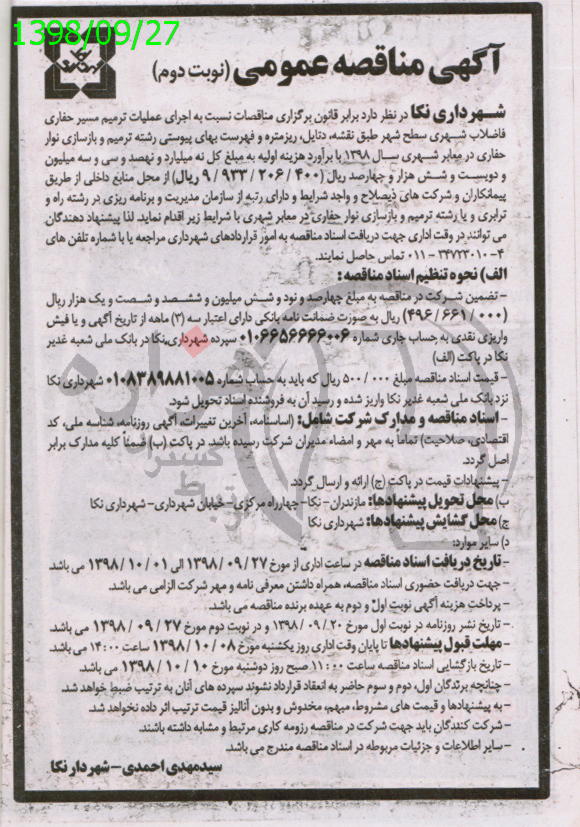 1398/09/27
آگهی مناقصه عمومی (نوبت دوم)
شهرداری نکا در نظر دارد برابر قانون برگزاری مناقصات نسبت به اجرای عملیات ترمیم مسیر حفاری
فاضلاب شهری سطح شهر طبق نقشه، دتایل، ریزمتره و فهرست بهای پیوستی رشته ترمیم و بازسازی نوار
حفاری در معابر شهری سال ۱۳۹۸ با برآورد هزینه اولیه به مبلغ کل نه میلیارد و نهصد و سی و سه میلیون
و دویست و شش هزار و چهارصد ریال (۹/۹۳۳/۲۰۶/۴۰۰ ریال) از محل منابع داخلی از طریق
پیمانکاران و شرکت های ذیصلاح و واجد شرایط و دارای رتبه از سازمان مدیریت و برنامه ریزی در رشته راه و
ترابری و یا رشته ترمیم و بازسازی نوار حفاری در معابر شهری با شرایط زیر اقدام نماید. لذا پیشنهاد دهندگان
می توانند در وقت اداری جهت دریافت اسناد مناقصه به امور قراردادهای شهرداری مراجعه یا با شماره تلفن های
۴-۳۴۷۲۳۰۱۰-۰۱۱ تماس حاصل نمایند.
الف) نحوه تنظیم اسناد مناقصه:
- تضمین شرکت در مناقصه به مبلغ چهارصد و نود و شش میلیون و ششصد و شصت و یک هزار ریال
(۴۹۶/۶۶۱/۰۰۰) ریال به صورت ضمانت نامه بانکی دارای اعتبار سه (۳) ماهه از تاریخ آگهی و یا فیش
واریزی نقدی به حساب جاری شماره ۰۱۰۶۶۵۶۶۶۶۰۰۶ سپرده شهرداری نکا در بانک ملی شعبه غدیر
نکا در پاکت (الف)
- قیمت اسناد مناقصه مبلغ ۵۰۰/۰۰۰ ریال که باید به حساب شماره ۰۱۰۸۳۸۹۸۸۱۰۰۵ شهرداری نکا
نزد بانک ملی شعبه غدیر نکا واریز شده و رسید آن به فروشنده اسناد تحویل شود.
- اسناد مناقصه و مدارک شرکت شامل: (اساسنامه، آخرین تغییرات، آگهی روزنامه، شناسه ملی، کد
اقتصادی، صلاحیت) تماماً به مهر و امضاء مدیران شرکت رسیده باشد. در پاکت (ب) ضمناً کلیه مدارک برابر
اصل گردد.
- پیشنهادات قیمت در پاکت (ج) ارائه و ارسال گردد.
ب) محل تحویل پیشنهادها: مازندران- نکا- چهارراه مرکزی- خیابان شهرداری- شهرداری نکا
ج) محل گشایش پیشنهادها: شهرداری نکا
د) سایر موارد:
- تاریخ دریافت اسناد مناقصه در ساعت اداری از مورخ ۱۳۹۸/۰۹/۲۷ الی ۱۳۹۸/۱۰/۰۱ می باشد.
- جهت دریافت حضوری اسناد مناقصه، همراه داشتن معرفی نامه و مهر شرکت الزامی می باشد.
- پرداخت هزینه آگهی نوبت اول و دوم به عهده برنده مناقصه می باشد.
- تاریخ نشر روزنامه در نوبت اول مورخ ۱۳۹۸/۰۹/۲۰ و در نوبت دوم مورخ ۱۳۹۸/۰۹/۲۷ می باشد.
- مهلت قبول پیشنهادها تا پایان وقت اداری روز یکشنبه مورخ ۱۳۹۸/۱۰/۰۸ ساعت ۱۴:۰۰ می باشد.
- تاریخ بازگشایی اسناد مناقصه ساعت ۱۱:۰۰ صبح روز دوشنبه مورخ ۱۳۹۸/۱۰/۱۰ می باشد.
- چنانچه برندگان اول، دوم و سوم حاضر به انعقاد قرارداد نشوند سپرده های آنان به ترتیب ضبط خواهد شد.
- به پیشنهادها و قیمت های مشروط، مبهم، مخدوش و بدون آنالیز قیمت ترتیب اثر داده نخواهد شد.
- شرکت کنندگان باید جهت شرکت در مناقصه رزومه کاری مرتبط و مشابه داشته باشند.
- سایر اطلاعات و جزئیات مربوطه در اسناد مناقصه مندرج می باشد.
سیدمهدی احمدی- شهردار نکا